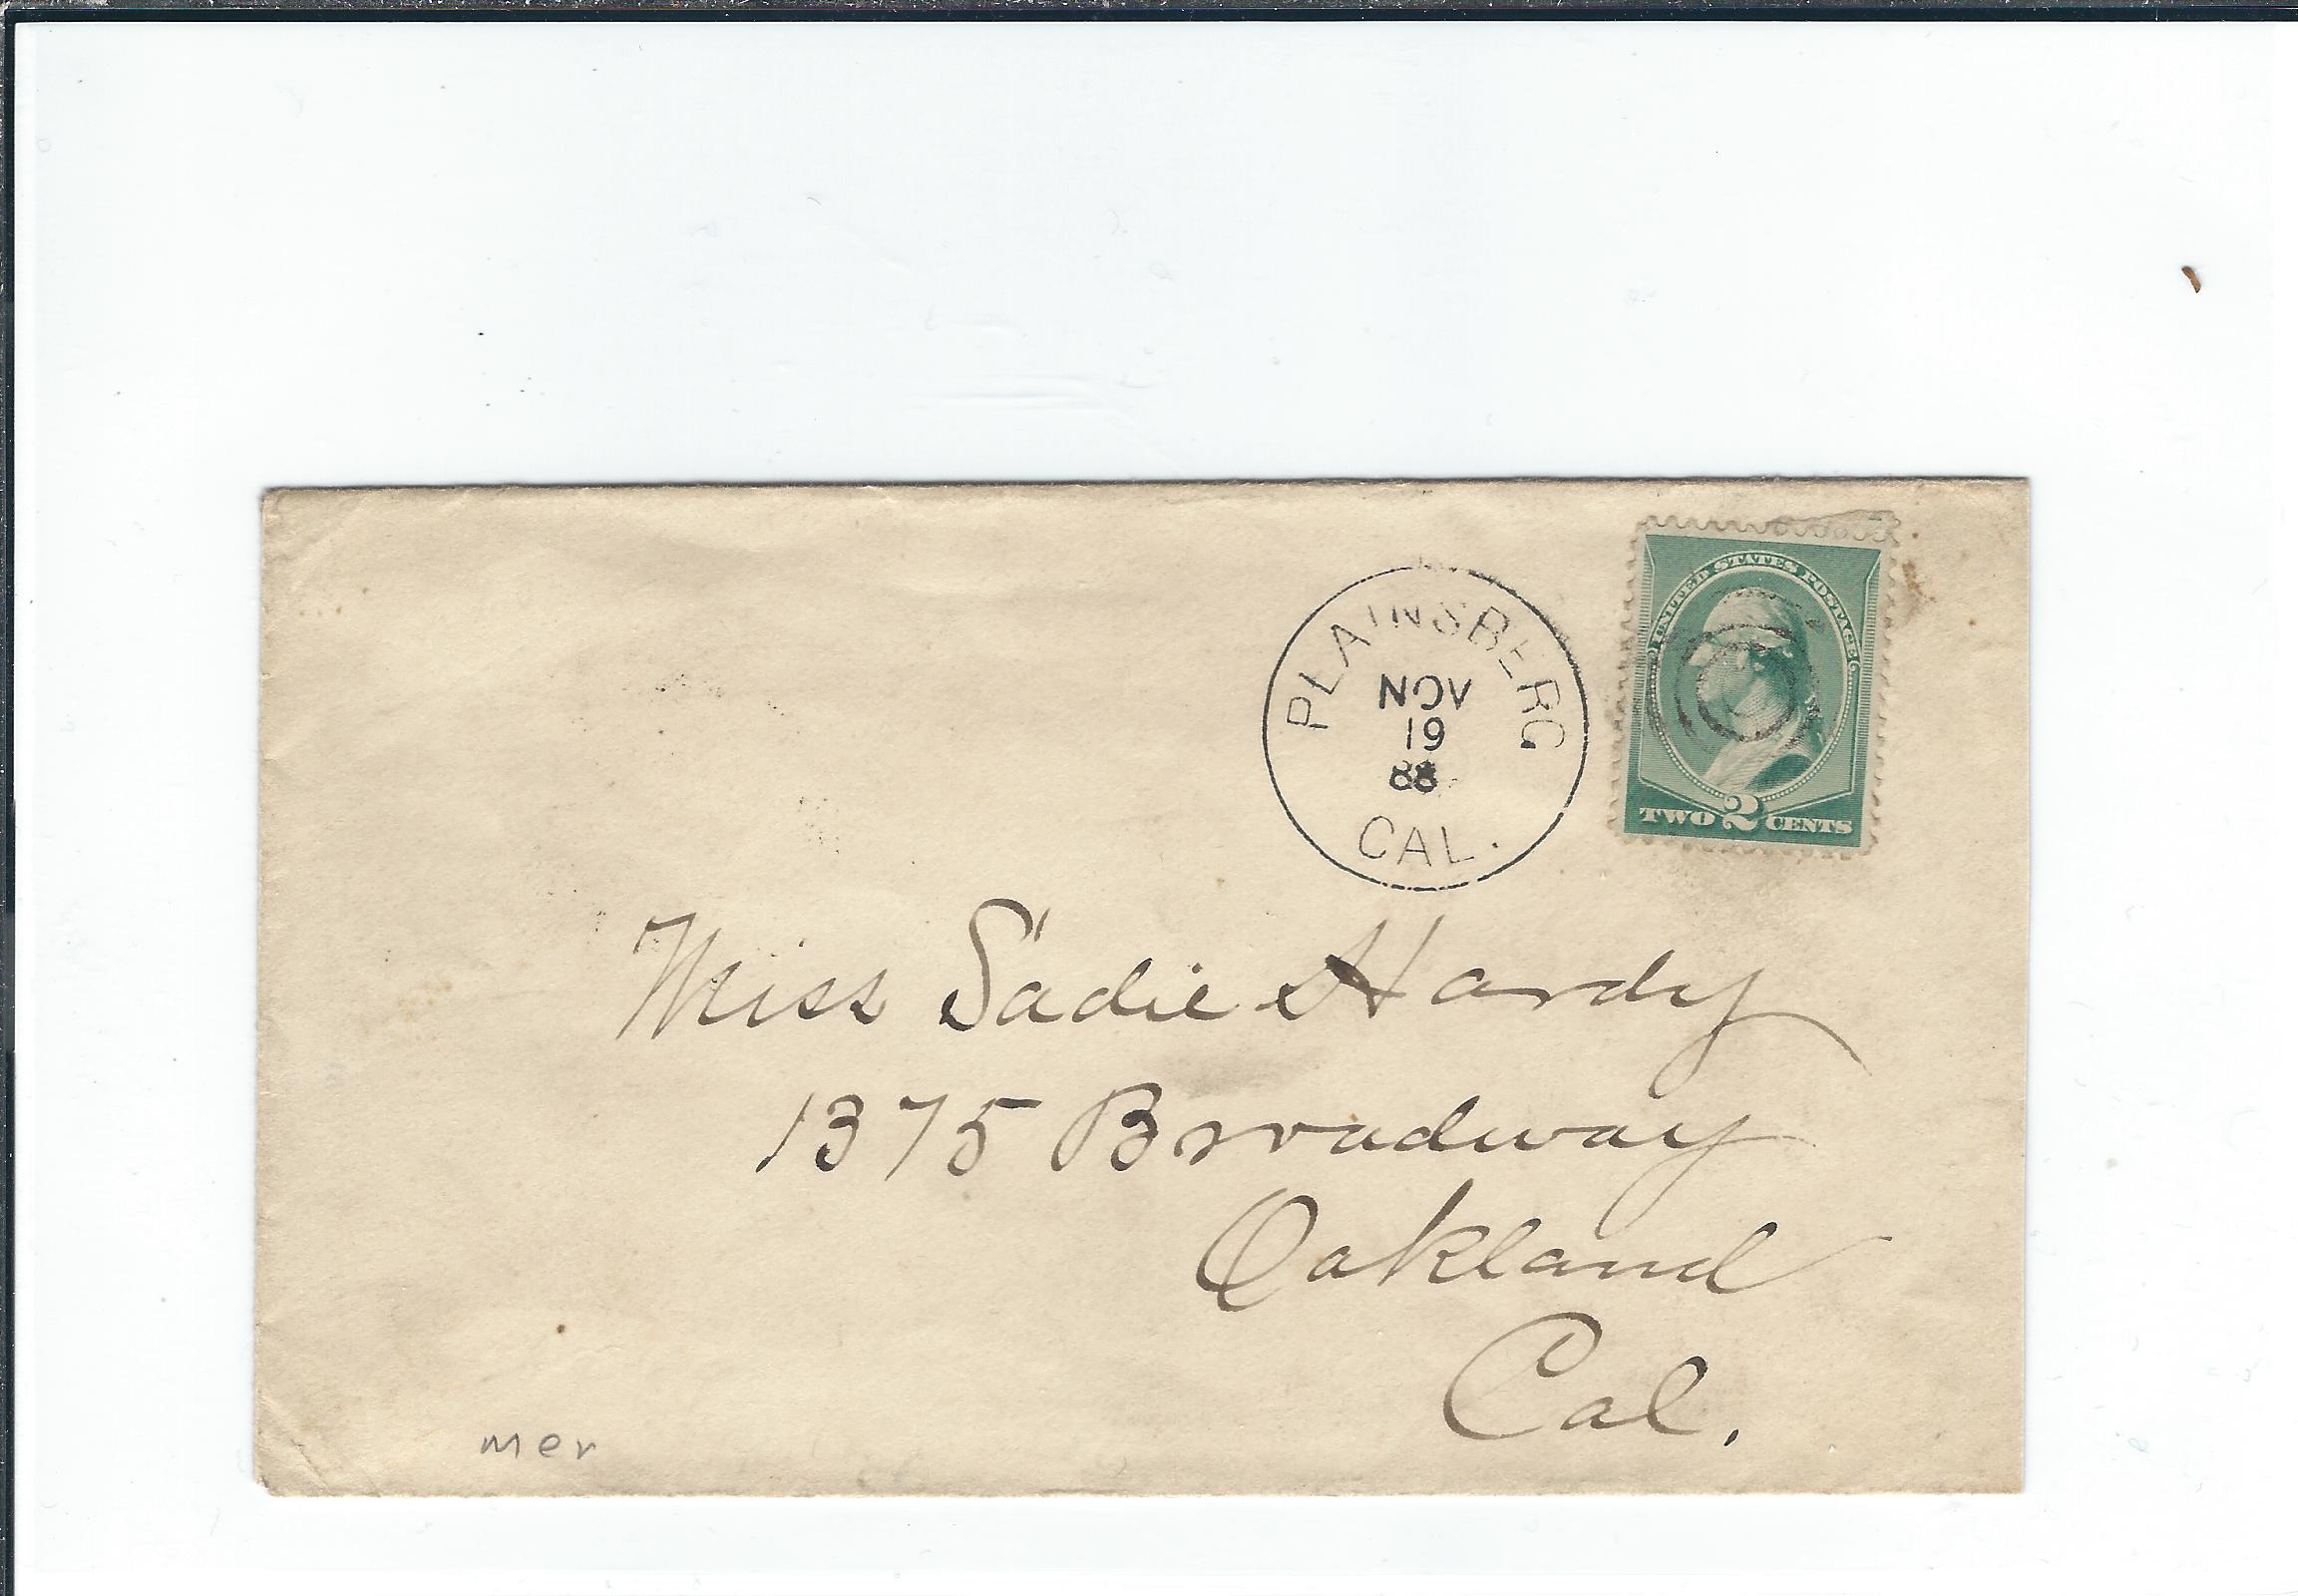 PLAINSBERG
NOV
19
88
CAL.
UNITED STATES POSTAGE
TWO 2 CENTS
Miss Sadie Hardy
1375 Broadway
Oakland
Cal.
mer